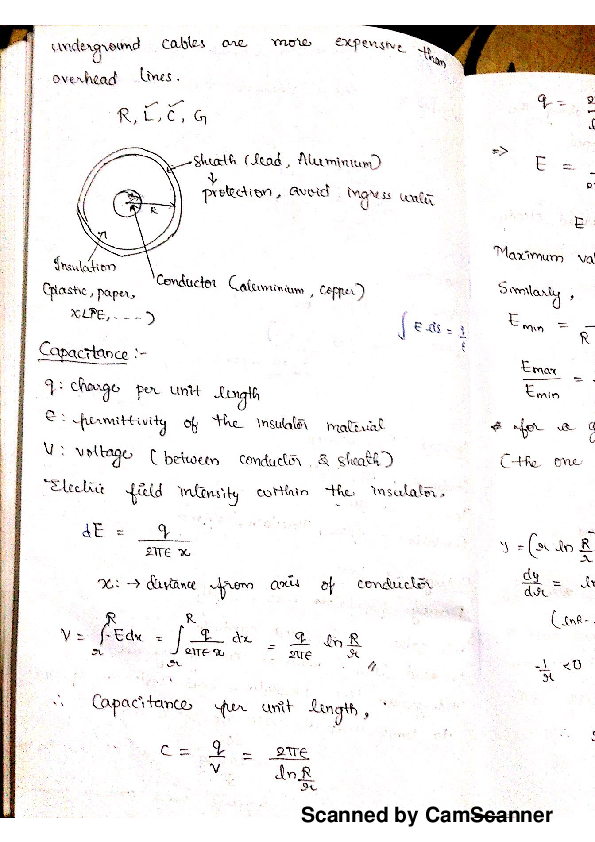 underground cables are more expensive than
overhead lines.
R, L, C, G
sheath (lead, Aluminium)
↓
protection, avoid ingress water
R
r
Insulation
(plastic, paper,
XLPE, ----)
Conductor (aluminium, copper)
∫ E ds = q/ε
Capacitance :-
q : charge per unit length
ϵ : permittivity of the insulator material
V : voltage (between conductor & sheath)
Electric field intensity within the insulator.
dE = q / 2πϵ x
x : → distance from axis of conductor
V = ∫_r^R E dx = ∫_r^R q/2πϵ x dx = q/2πϵ ln R/r //
∴ Capacitance per unit length,
C = q/V = 2πϵ / ln R/r
q =
⇒ E =
E =
Maximum
Similarly,
Emin =
R
Emax/Emin =
for a
(the one
y = (r ln R/r
dy/dr =
(lnR-
-1/r < 0
∴
Scanned by CamScanner